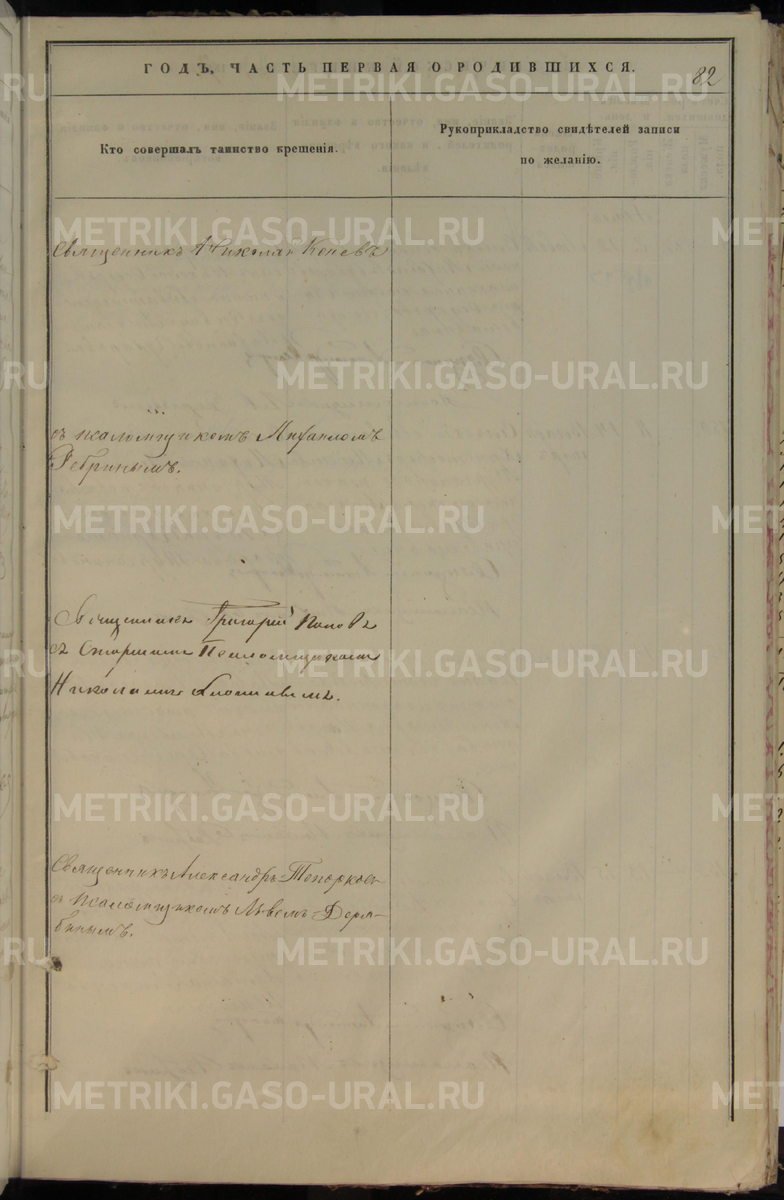 ГОДЪ, ЧАСТЬ ПЕРВАЯ О РОДИВШИХСЯ.
82
Кто совершалъ таинство крещенія.
Рукоприкладство свидѣтелей записи
по желанію.
Священникъ Николай Коневъ
съ псаломщикомъ Михаиломъ
Ребринымъ.
Священникъ Григорій Поповъ
съ Старшимъ Псаломщикомъ
Николаемъ
Священникъ Александръ Топорковъ
съ псаломщикомъ Львомъ Деря-
бинымъ.
METRIKI.GASO-URAL.RU